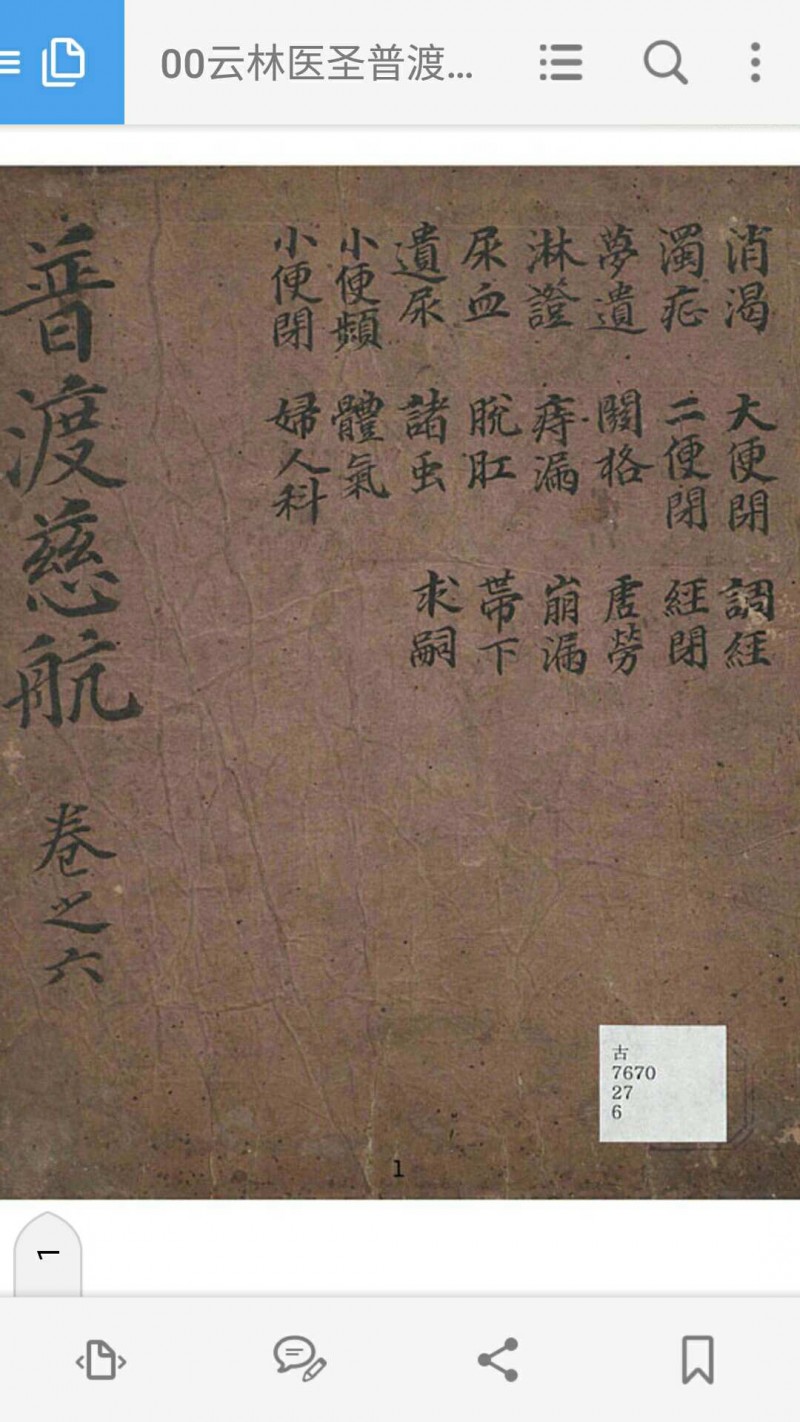 00云林医圣普渡...
消渴
濁疟
夢遺
淋證
尿血
遺尿
小便頻
小便閉
大便閉
二便閉
關格
痔漏
脫肛
諸虫
體氣
婦人科
調経
経閉
虗勞
崩漏
帶下
求嗣
普渡慈航
卷之六
古
7670
27
6
1
1